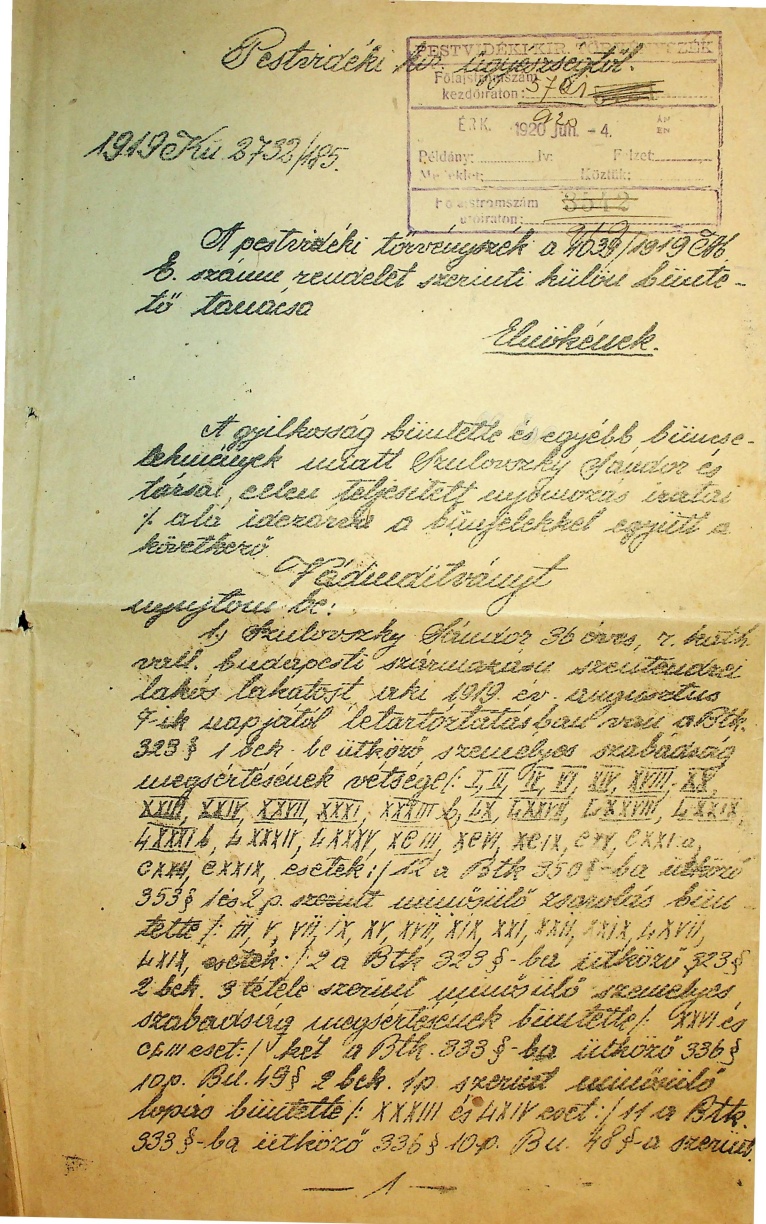 Pestvidéki kir. ügyészségtől.
PESTVIDÉKI KIR. TÖRVÉNYSZÉK
Főlajstromszám
kezdőiraton: 3701
920
ÉRK. 1920 JUN. - 4.
Példány: Iv: Felzet:
Melléklet: Köztük:
Főlajstromszám
utóiraton: 3542
1919 Kü 2732/485.
A pestvidéki törvényszék a 4039/1919 ME
E. számu rendelet szerinti külön bünte-
tő tanácsa
Elnökének.
A gyilkosság büntette és egyébb büncse-
lekmények miatt Szulovszky Sándor és
társai ellen teljesített nyomozás iratai
·/. alá idezárva a bünjelekkel együtt a
következő
Vádinditványt
nyujtom be:
1.) Szulovszky Sándor 36 éves, r. kath
vall. budapesti származásu szentendrei
lakós lakatost aki 1919. év. augusztus
7-ik napjától letartóztatásban van a Btk.
323 § 1 bek. be ütköző személyes szabadság
megsértésének vétsége /: I, II, IV, VI, XIV, XVIII, XX,
XXIII, XXIV, XXVII, XXXI, XXXIII b, LX, LXXVII, LXXVIII, LXXIX,
LXXXI b, LXXXIV, LXXXV, XCIII, XCVI, XCIX, CXV, CXXI.a,
CXXII, CXXIX, esetek :/ 12 a Btk 350 §-ba ütköző
353 § 1 és 2 p. szerint minősülő zsarolás bün
tette /: III, V, VII, IX, XV, XVII, XIX, XXI, XXII, XXIX, LXVII,
LXIX, esetek :/ 2 a Btk 323 §-ba ütköző 323 §
2 bek. 3 tétele szerint minősülő személyes
szabadság megsértésének büntette /: XXVI és
CLIII eset :/ két a Btk. 333 §-ba ütköző 336 §
10 p. Bn. 49 § 2 bek. 1 p. szerint minősülő
lopás büntette /: XXXIII és LXIV eset :/ 11 a Btk.
333 §-ba ütköző 336 § 10 p. Bn. 48 §-a szerint
— 1 —